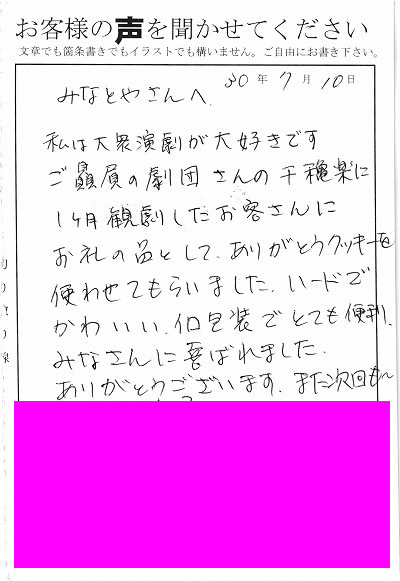 お客様の声を聞かせてください
文章でも箇条書きでもイラストでも構いません。ご自由にお書き下さい。
30年7月10日
みなとやさんへ.
私は大衆演劇が大好きです
ご贔屓の劇団さんの千穐楽に
1ヶ月観劇したお客さんに
お礼の品として、ありがとうクッキーを
使わせてもらいました.
かわいい、個包装でとても便利、
みなさんに喜ばれました.
ありがとうございます. また次回も